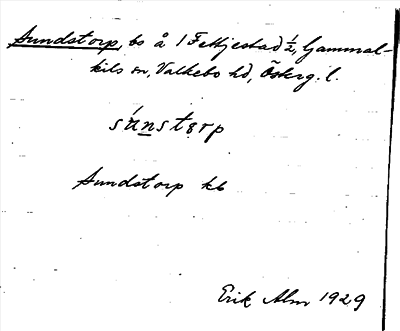 Sundstorp, bs å 1 Fettjestad ½, Gammal-
kils sn, Valkebo hd, Österg. l.
súnstərp
Sundstorp kb
Erik Alm 1929